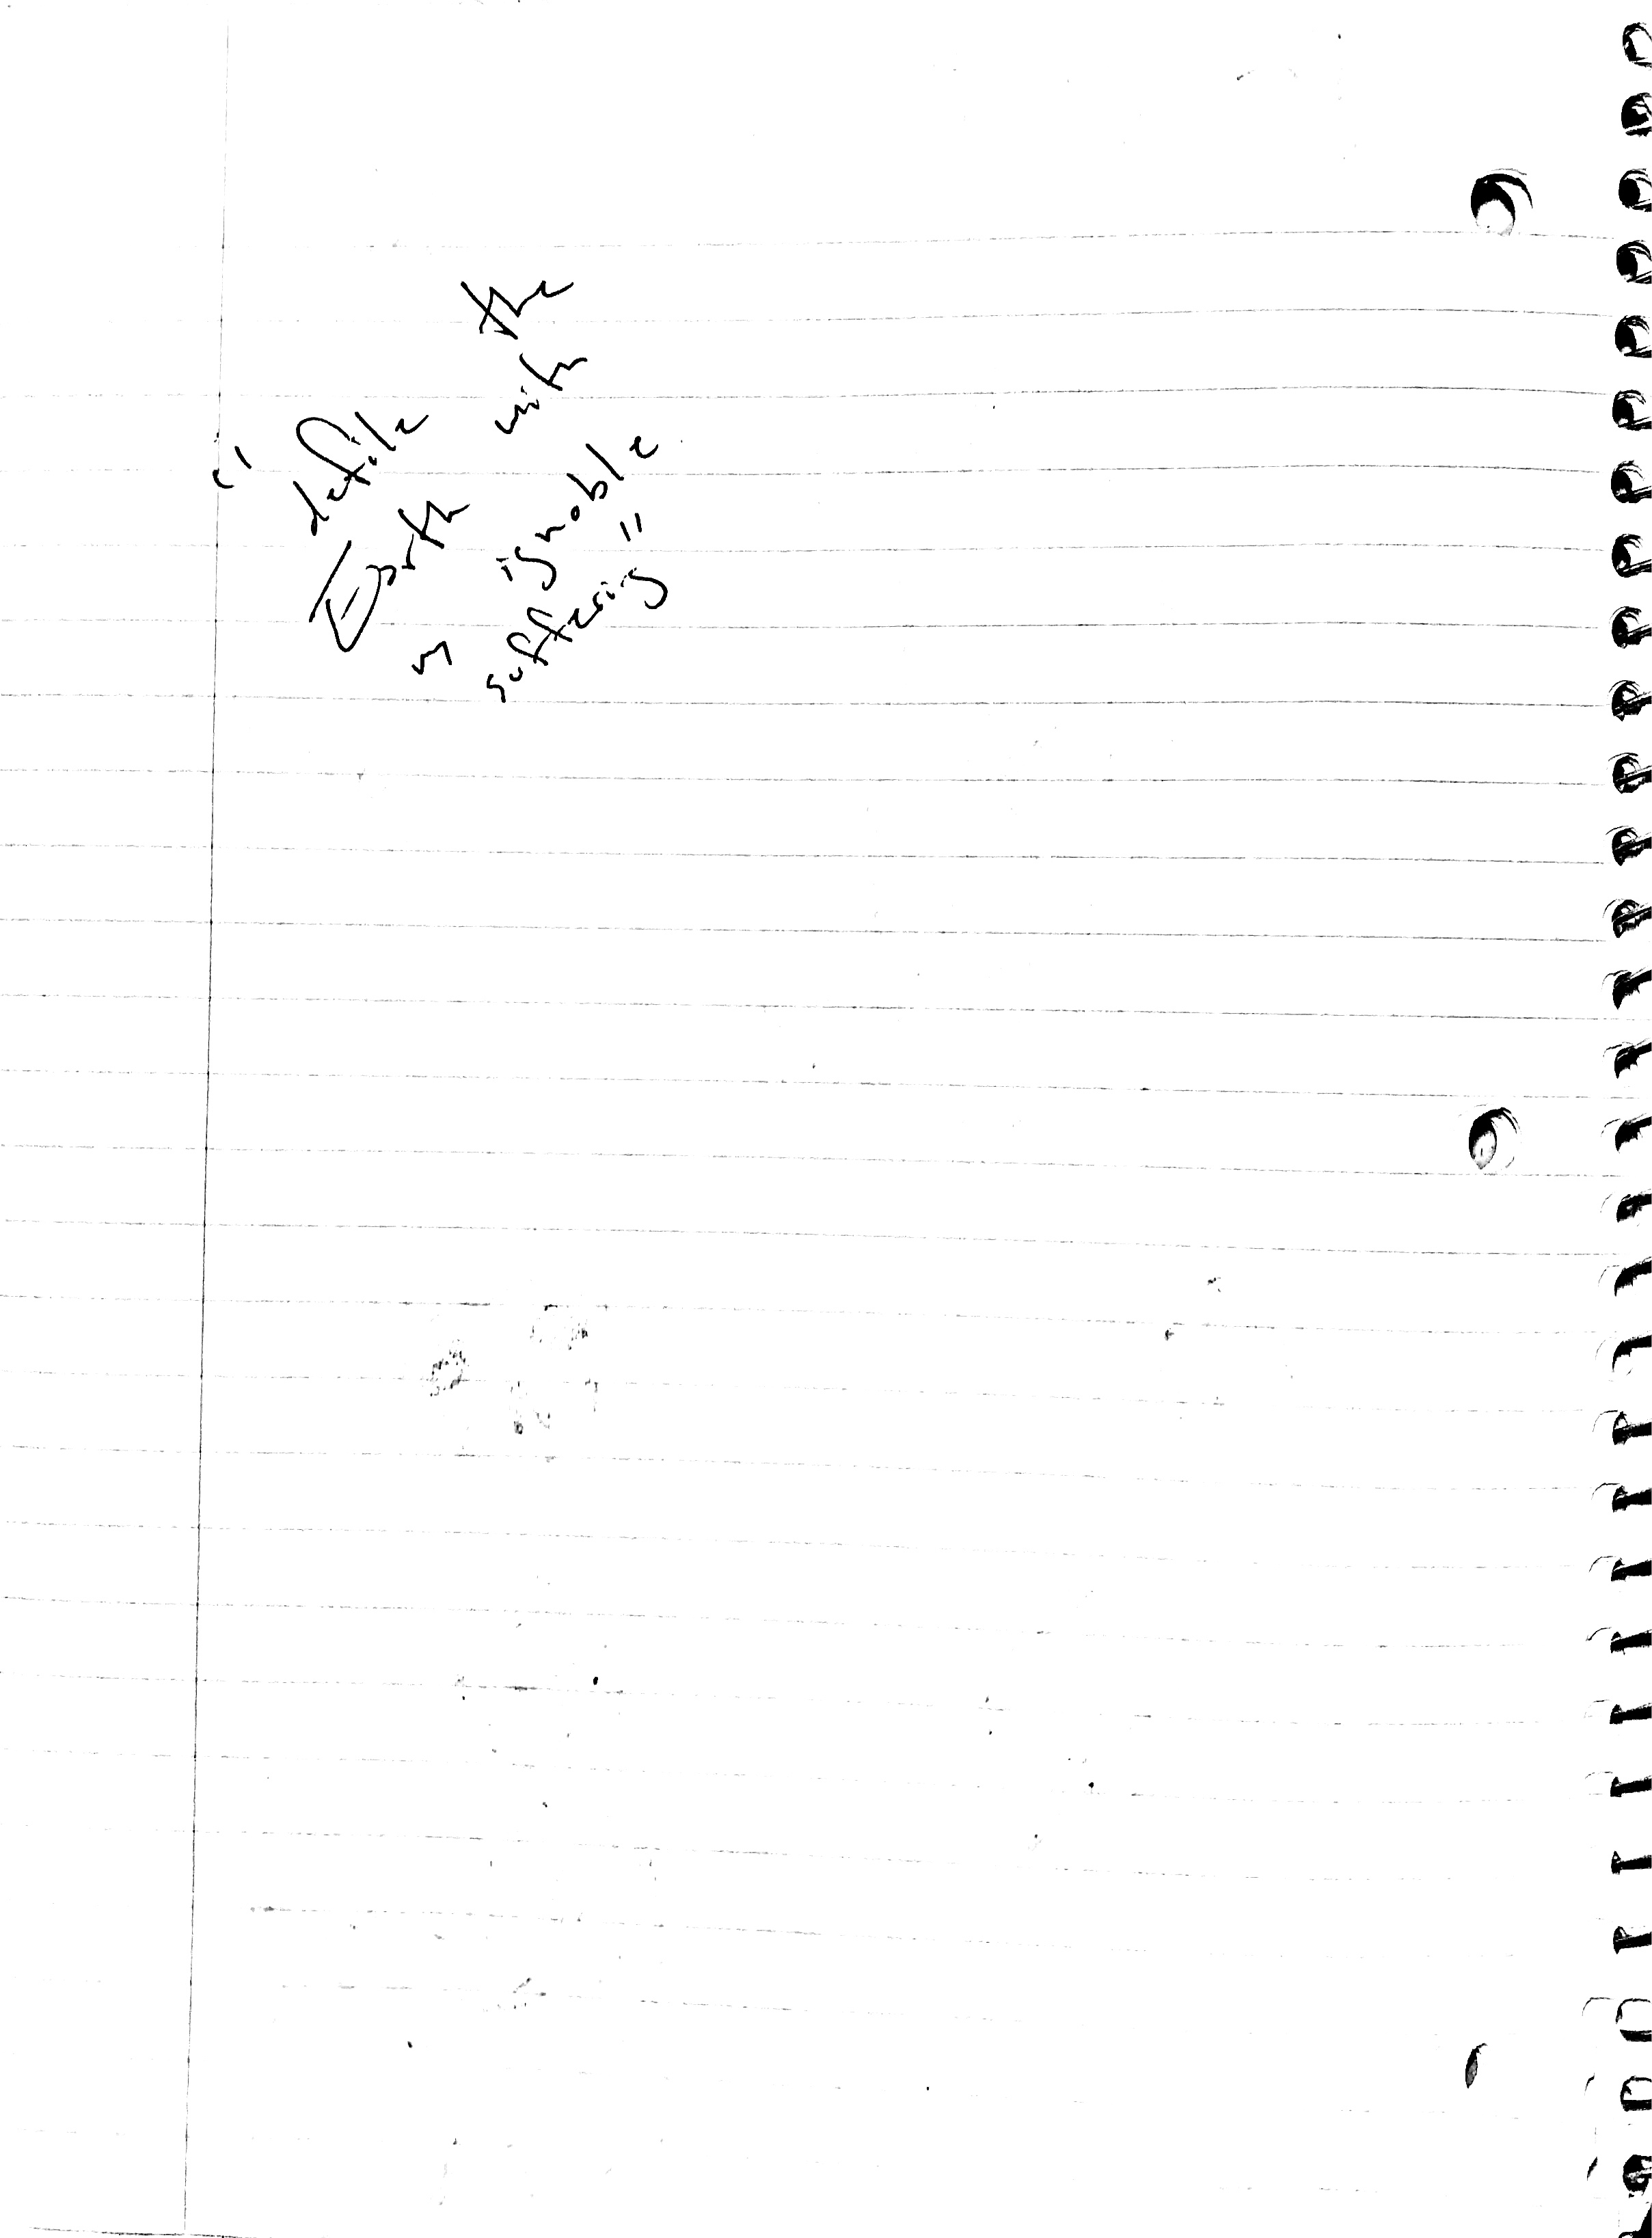 " defile the
Earth with
ignoble
suffering"